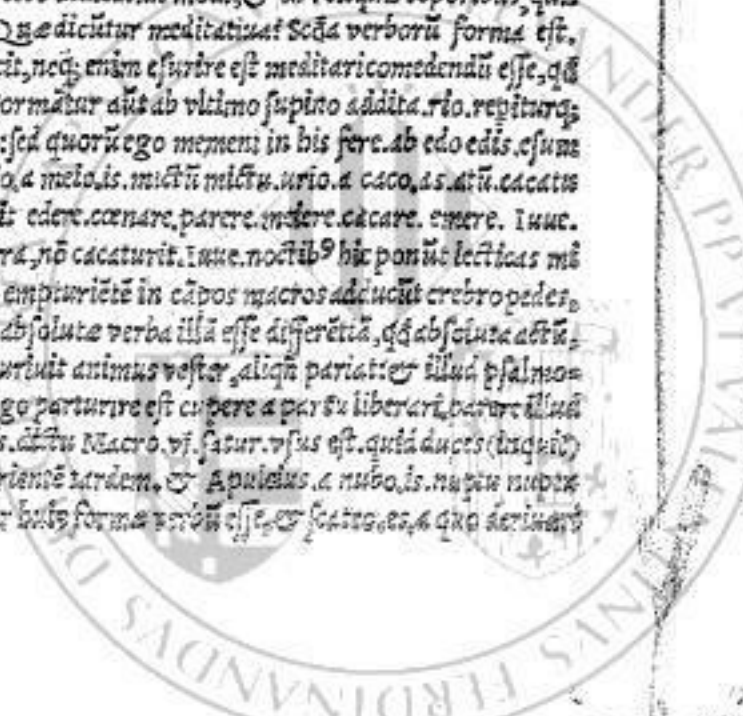 Quædicūtur meditatiuæ Scđa verborū forma eſt,
cit,neq; enim eſurire eſt meditari comedendū eſſe,qđ
ormātur aūt ab vltimo ſupino addita.rio.repiturq;
:ſed quorū ego memeni in his fere.ab edo edis.eſum
o,a meio,is.mictū mictu.urio.a caco,as.atū.cacatu
it edere.cœnare,parere.meiere.cacare. emere. Iuue.
ra,nō cacaturit.Iuue.noctibꝰ hic ponūt lecticas mi
empturiētē in cāpos macros adducūt crebro pedes,
abſoluta verba illā eſſe differētiā,qđ abſoluta actū,
uriuit animus veſter,aliqñ pariat:& illud pſalmo=
go parturire eſt cupere a partu liberari,parere illud
s.dictu Macro.vi.ſatur.vſus eſt.quid duces(inquit)
rientē tardem.& Apuleius.a nubo,is.nuptu nuptu
r huiꝰ formæ verbū eſſe,& ſcateo,es,a quo deriuari
FERDINANDUS